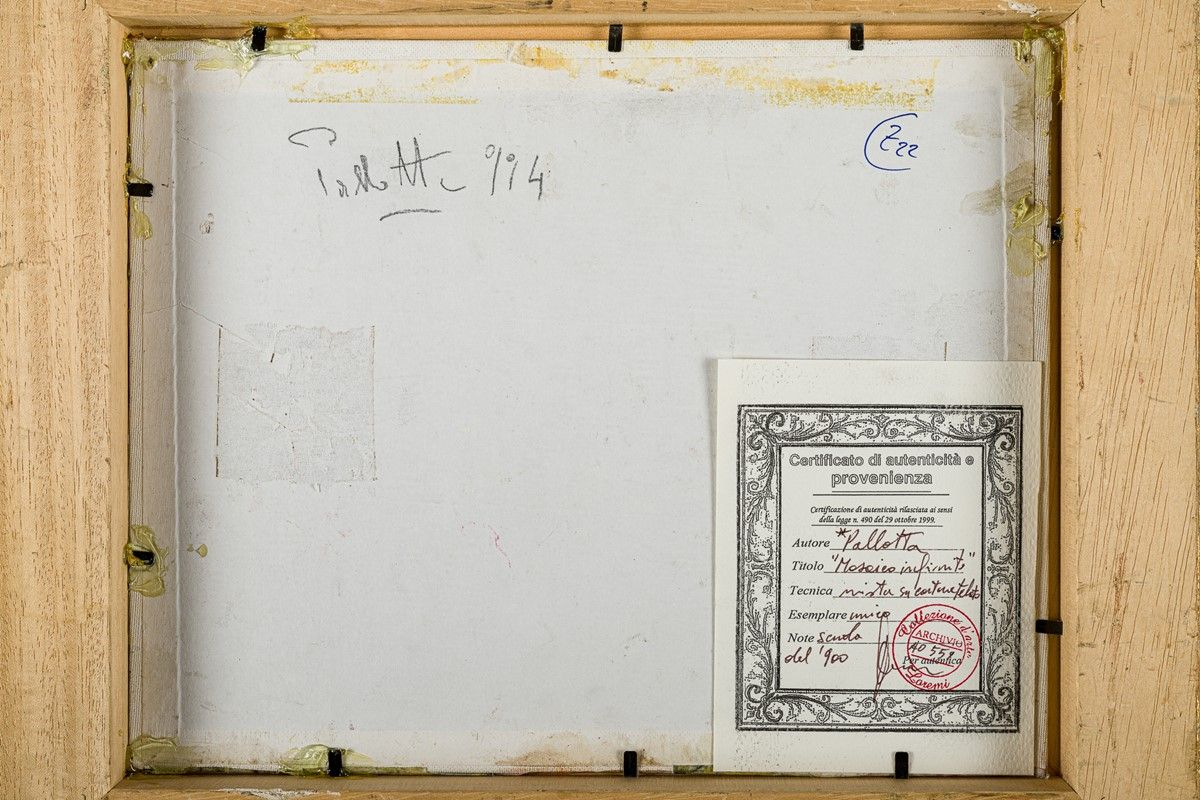 Pallotta 994
Z 22
Certificato di autenticità e
provenienza
Certificazione di autenticità rilasciata ai sensi
della legge n. 490 del 29 ottobre 1999.
Autore *Pallotta
Titolo "Mosaico infinito"
Tecnica mista su cartone telato
Esemplare unico
Note scuola
del '900
Collezione d'arte
ARCHIVIO
AO 558
Per autentica
Laremi